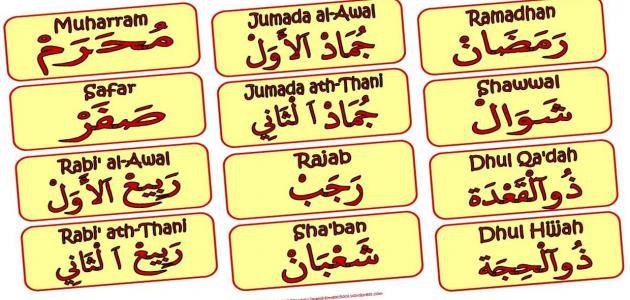 Muharram
مُحَرَمْ
Safar
صَفَرْ
Rabi' al-Awal
رَبِيعْ اَلأَوَلْ
Rabi' ath-Thani
رَبِيعْ اَلْثَانِي
Jumada al-Awal
جُمَادْ اَلأَوَلْ
Jumada ath-Thani
جُمَادْ اَلْثَانِي
Rajab
رَجَبْ
Sha'ban
شَعْبَانْ
Ramadhan
رَمَضَانْ
Shawwal
شَوَالْ
Dhul Qa'dah
ذُوالْقَعْدَة
Dhul Hijjah
ذُوالْحِجَة